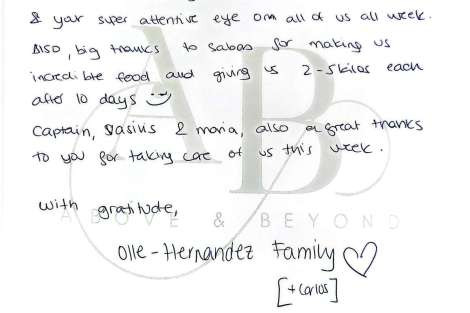 & your super attentive eye om all of us all week.
Also, big thanks to Sabas for making us
incredible food and giving us 2-5 kilos each
after 10 days
Captain, Vasilis & Maria, also a great thanks
to you for taking care of us this week.
With gratitude,
ABOVE & BEYOND
Olle-Hernandez Family
[+ Carlos]